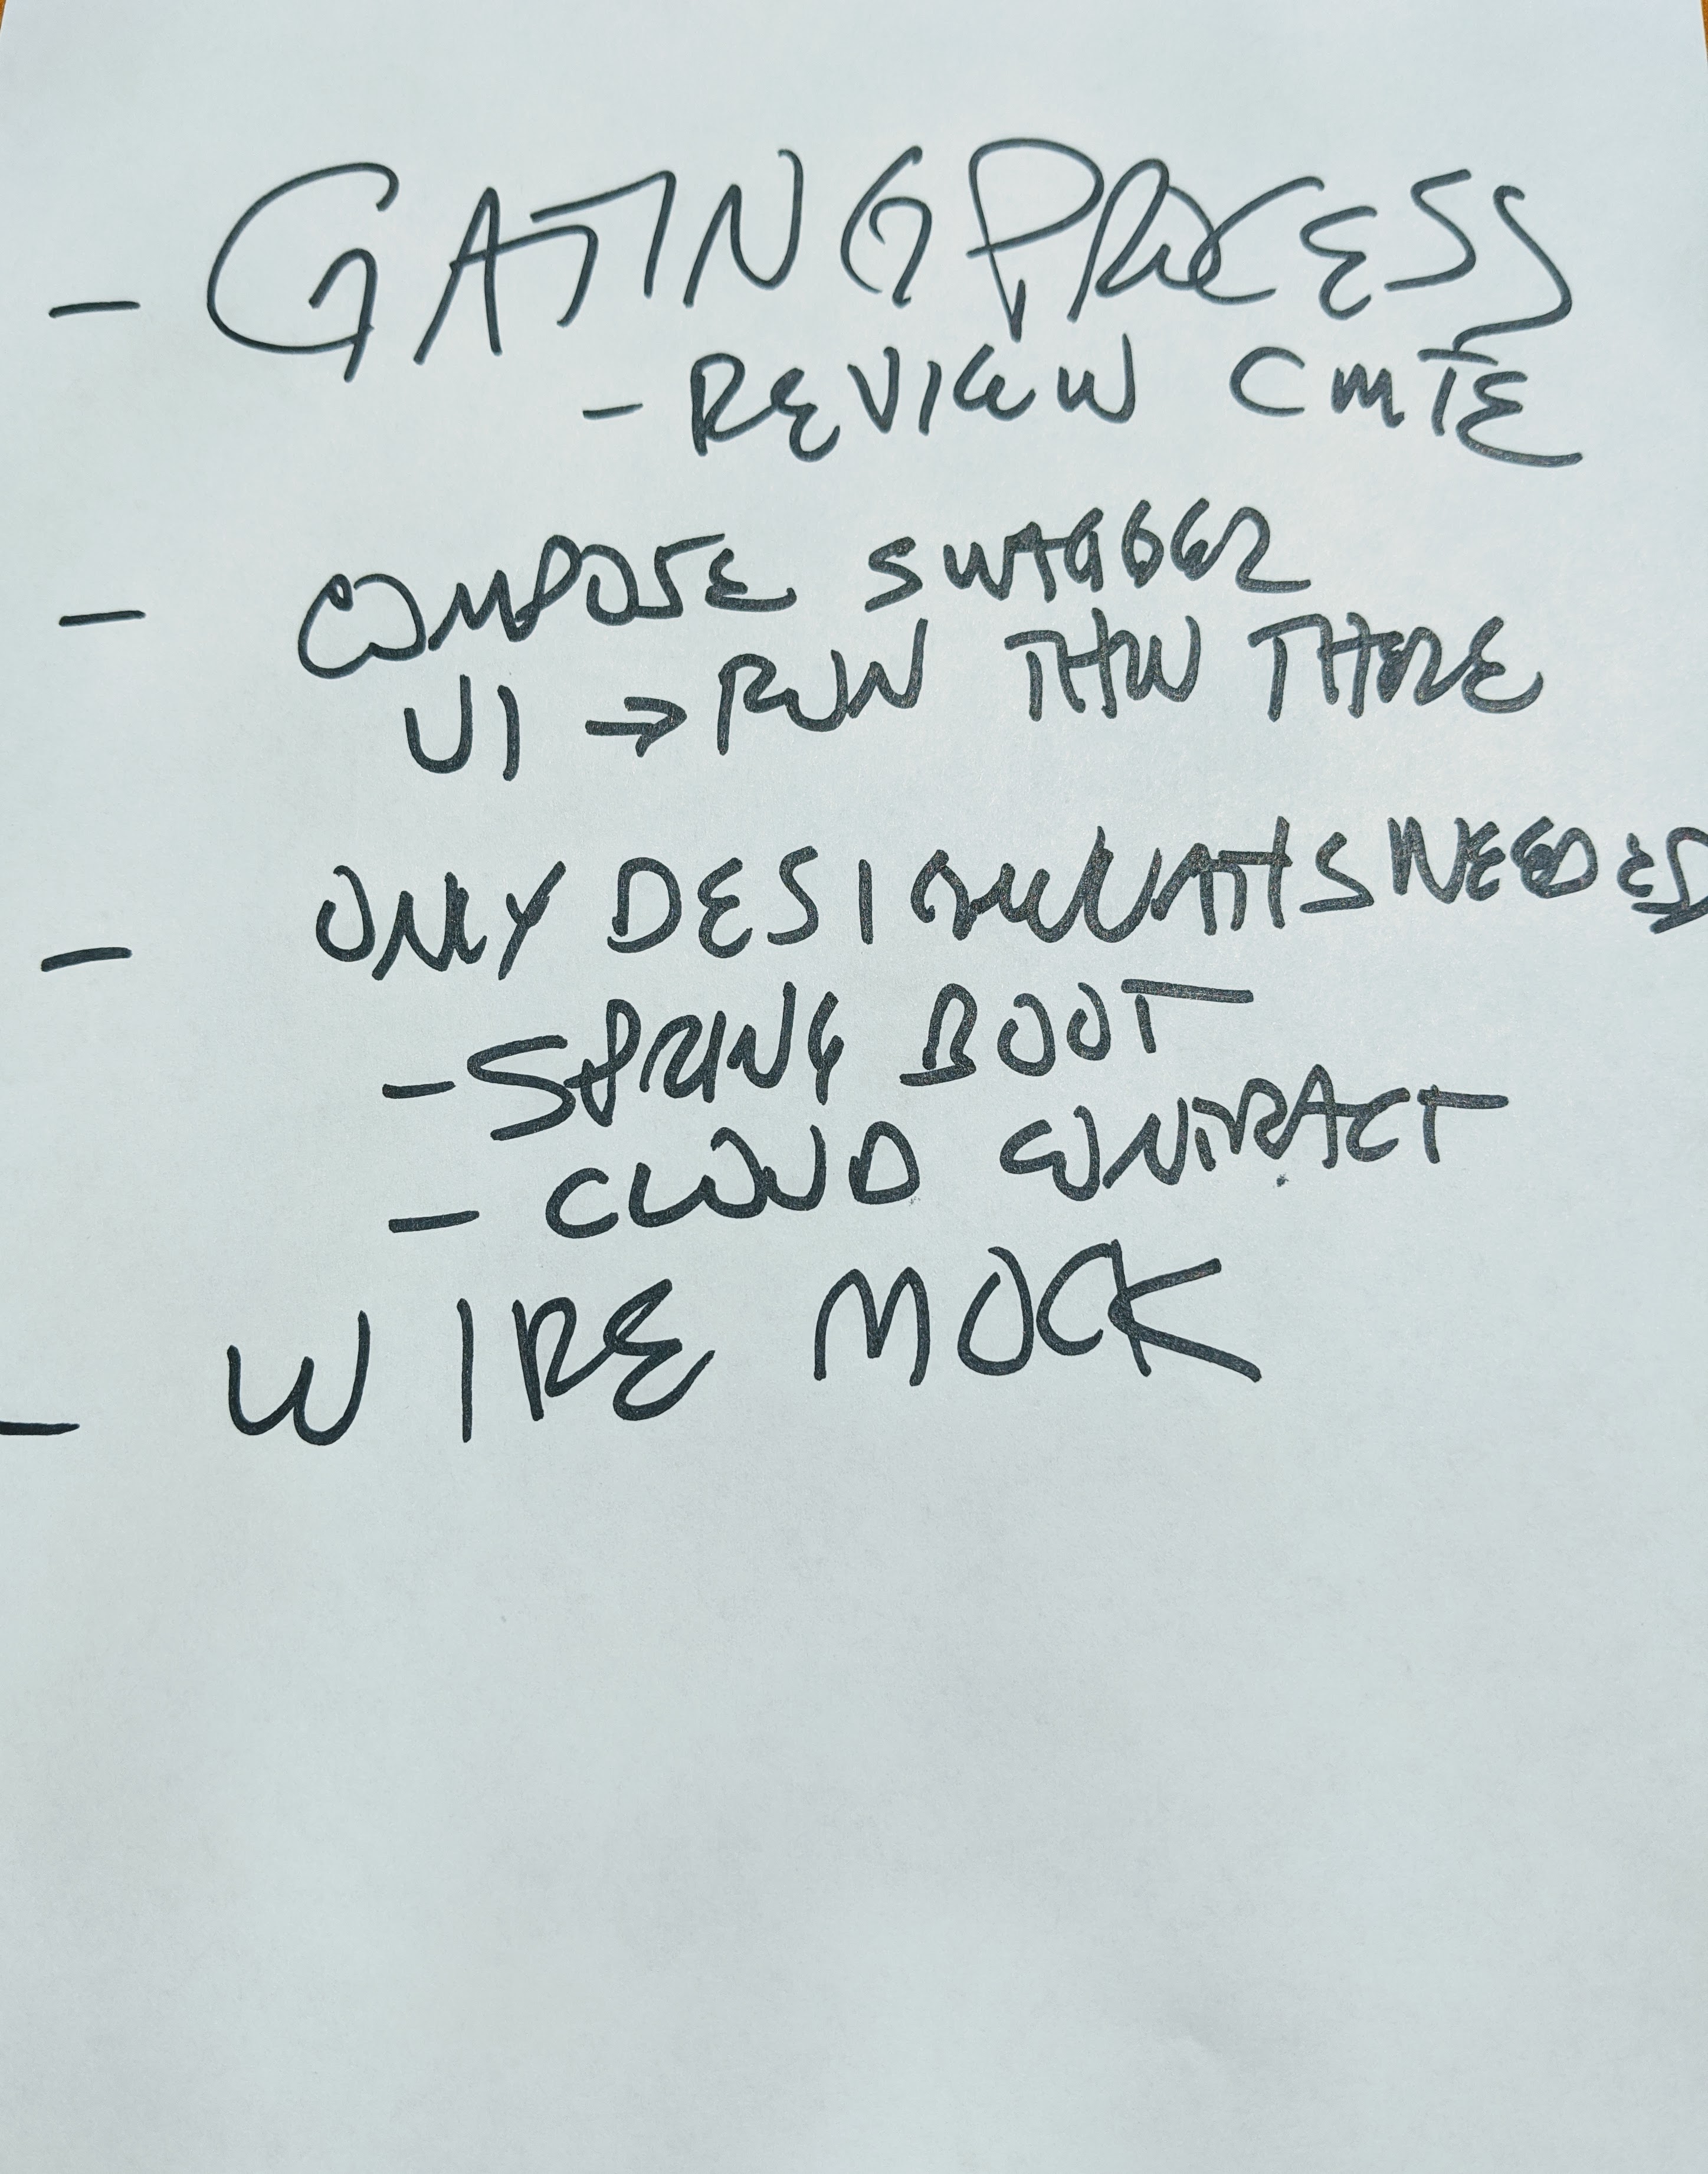 - GATING PROCESS
- REVIEW CMTE
- COMPOSE SWAGGER
UI → RUN THRU THERE
- ONLY DESIGN WHAT IS NEEDED
- SPRING BOOT
- CLOUD CONTRACT
- WIRE MOCK